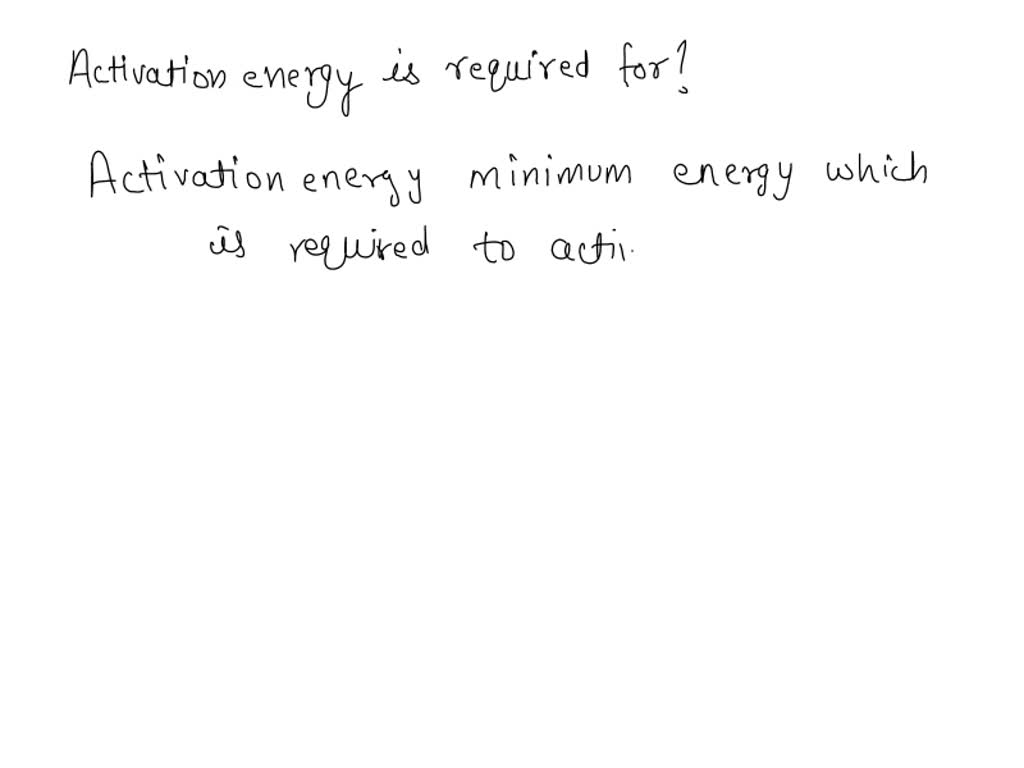 Activation energy is required for?
Activation energy minimum energy which
is required to acti